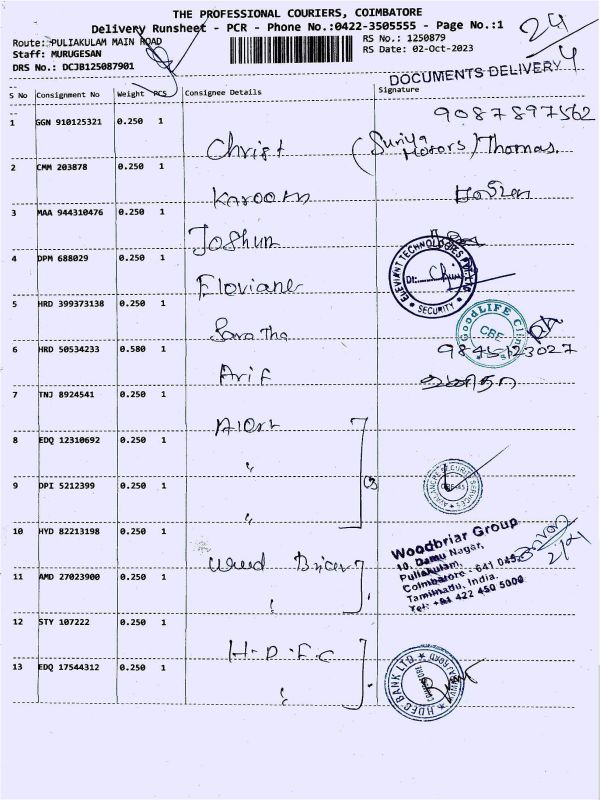 THE PROFESSIONAL COURIERS, COIMBATORE
Delivery Runsheet - PCR - Phone No.:0422-3505555 - Page No.:1
Route: PULIAKULAM MAIN ROAD
RS No.: 1250879
Staff: MURUGESAN
RS Date: 02-Oct-2023
DRS No.: DCJB125087901
24
4
DOCUMENTS DELIVERY
S No Consignment No Weight PCS Consignee Details Signature
9087897562
1 GGN 910125321 0.250 1
Christ (Suriya Motors) Thomas.
2 CMM 203878 0.250 1
Karooan
3 MAA 944310476 0.250 1
Joshun
4 DPM 688029 0.250 1
Floviane
ELEVIANT TECHNOLOGIES
SECURITY
5 HRD 399373138 0.250 1
GoodLIFE Clinic
CBE
6 HRD 50534233 0.580 1
9845123027
Arif
7 TNJ 8924541 0.250 1
Alert
8 EDQ 12310692 0.250 1
"
9 DPI 5212399 0.250 1
(3
SECURITY SERVICES
"
10 HYD 82213198 0.250 1
Woodbriar Group
10, Damu Nagar,
Puliakulam,
Coimbatore - 641 045.
Tamilnadu, India.
Tel: +91 422 450 5000
Wood Bricer
11 AMD 27023900 0.250 1
"
12 STY 107222 0.250 1
H-D-F-C
13 EDQ 17544312 0.250 1
"
HDFC BANK LTD.